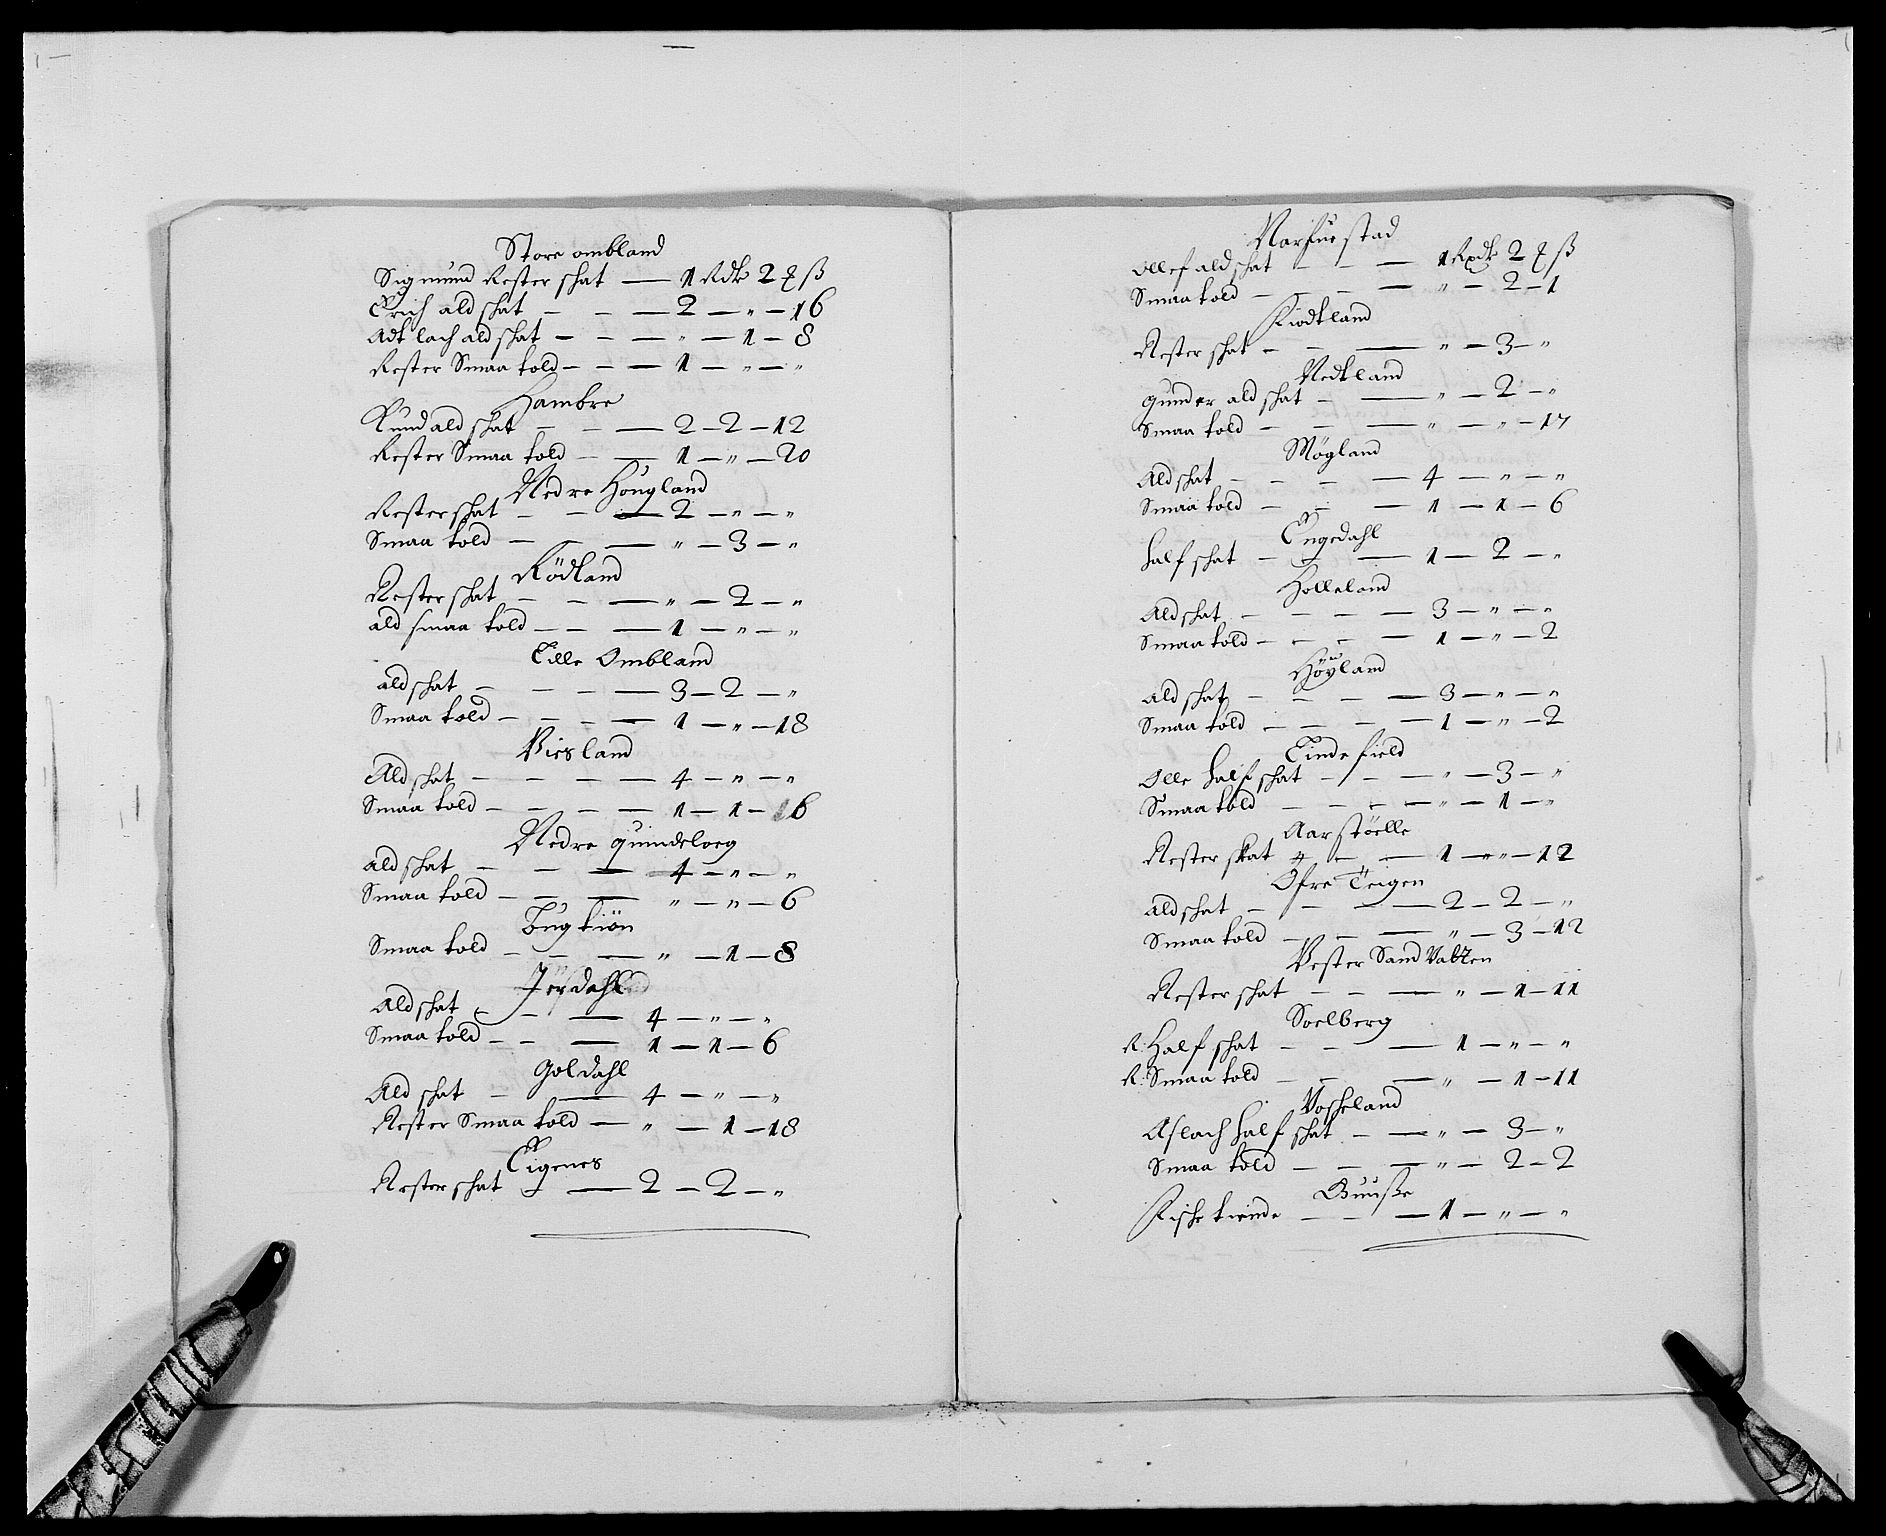 Store ombland
Sigmund Rester schat — 1 Rdk 2 ʒ ß
Erich ald schat — — — 2 — „ — 16
Adtlach ald schat — — — „ — 1 — 8
Rester Smaa told — — — 1 — „ — „
Hambre
Knud ald schat — — — 2 — 2 — 12
Rester Smaa told — — 1 — „ — 20
Nedre Hougland
Rester schat — — — 2 — „ — „
Smaa told — — — „ — 3 — „
Rödland
Rester schat — — — „ — 2 — „
ald smaa told — — — 1 — „ — „
Lille Ombland
ald schat — — — — 3 — 2 — „
Smaa told — — — — 1 — „ — 18
Birsland
Ald schat — — — — 4 — „ — „
Smaa told — — — — 1 — 1 — 16
Nedre quindsloeg
ald schat — — — 4 — „ — „
Smaa told — — — „ — „ — 6
Bugtiön
Smaa told — — — „ — 1 — 8
Jerdahl
Ald schat — — — 4 — „ — „
Smaa told — — — 1 — 1 — 6
Goldahl
Ald schat — — 4 — „ — „
Rester Smaa told — „ — 1 — 18
Eigenes
Rester schat — — 2 — 2 — „
Narfuestad
ollef ald schat — — — 1 Rxdk 2 ʒ ß
Smaa told — — — — „ — 2 — 1
Kiodtland
Rester schat — — — „ — 3 — „
Nedtland
gunder ald schat — — „ — 2 — „
Smaa told — — — „ — „ — 17
Mögland
Ald schat — — — — 4 — „ — „
Smaa told — — — 1 — 1 — 6
Engedahl
half schat — — — 1 — 2 — „
Holleland
Ald schat — — — — 3 — „ — „
Smaa told — — — — 1 — „ — 2
Höyland
ald schat — — — — 3 — „ — „
Smaa told — — — — 1 — „ — 2
Lindefield
Olle half schat — — — „ — 3 — „
Smaa told — — — — „ — 1 — „
Aarstöelle
Rester skat — — — 1 — „ — 12
Ofre Teigen
ald schat — — — — 2 — 2 — „
Smaa told — — — „ — 3 — 12
Vester Sand Vatten
Rester schat — — — „ — 1 — 11
Soelberg
R: Half schat — — — 1 — „ — „
R: Smaa told — — — „ — 1 — 11
Voscheland
Aslach half schat — — „ — 3 — „
Smaa told — — — „ — 2 — 2
Guusse
Fische tiende — — — 1 — „ — „